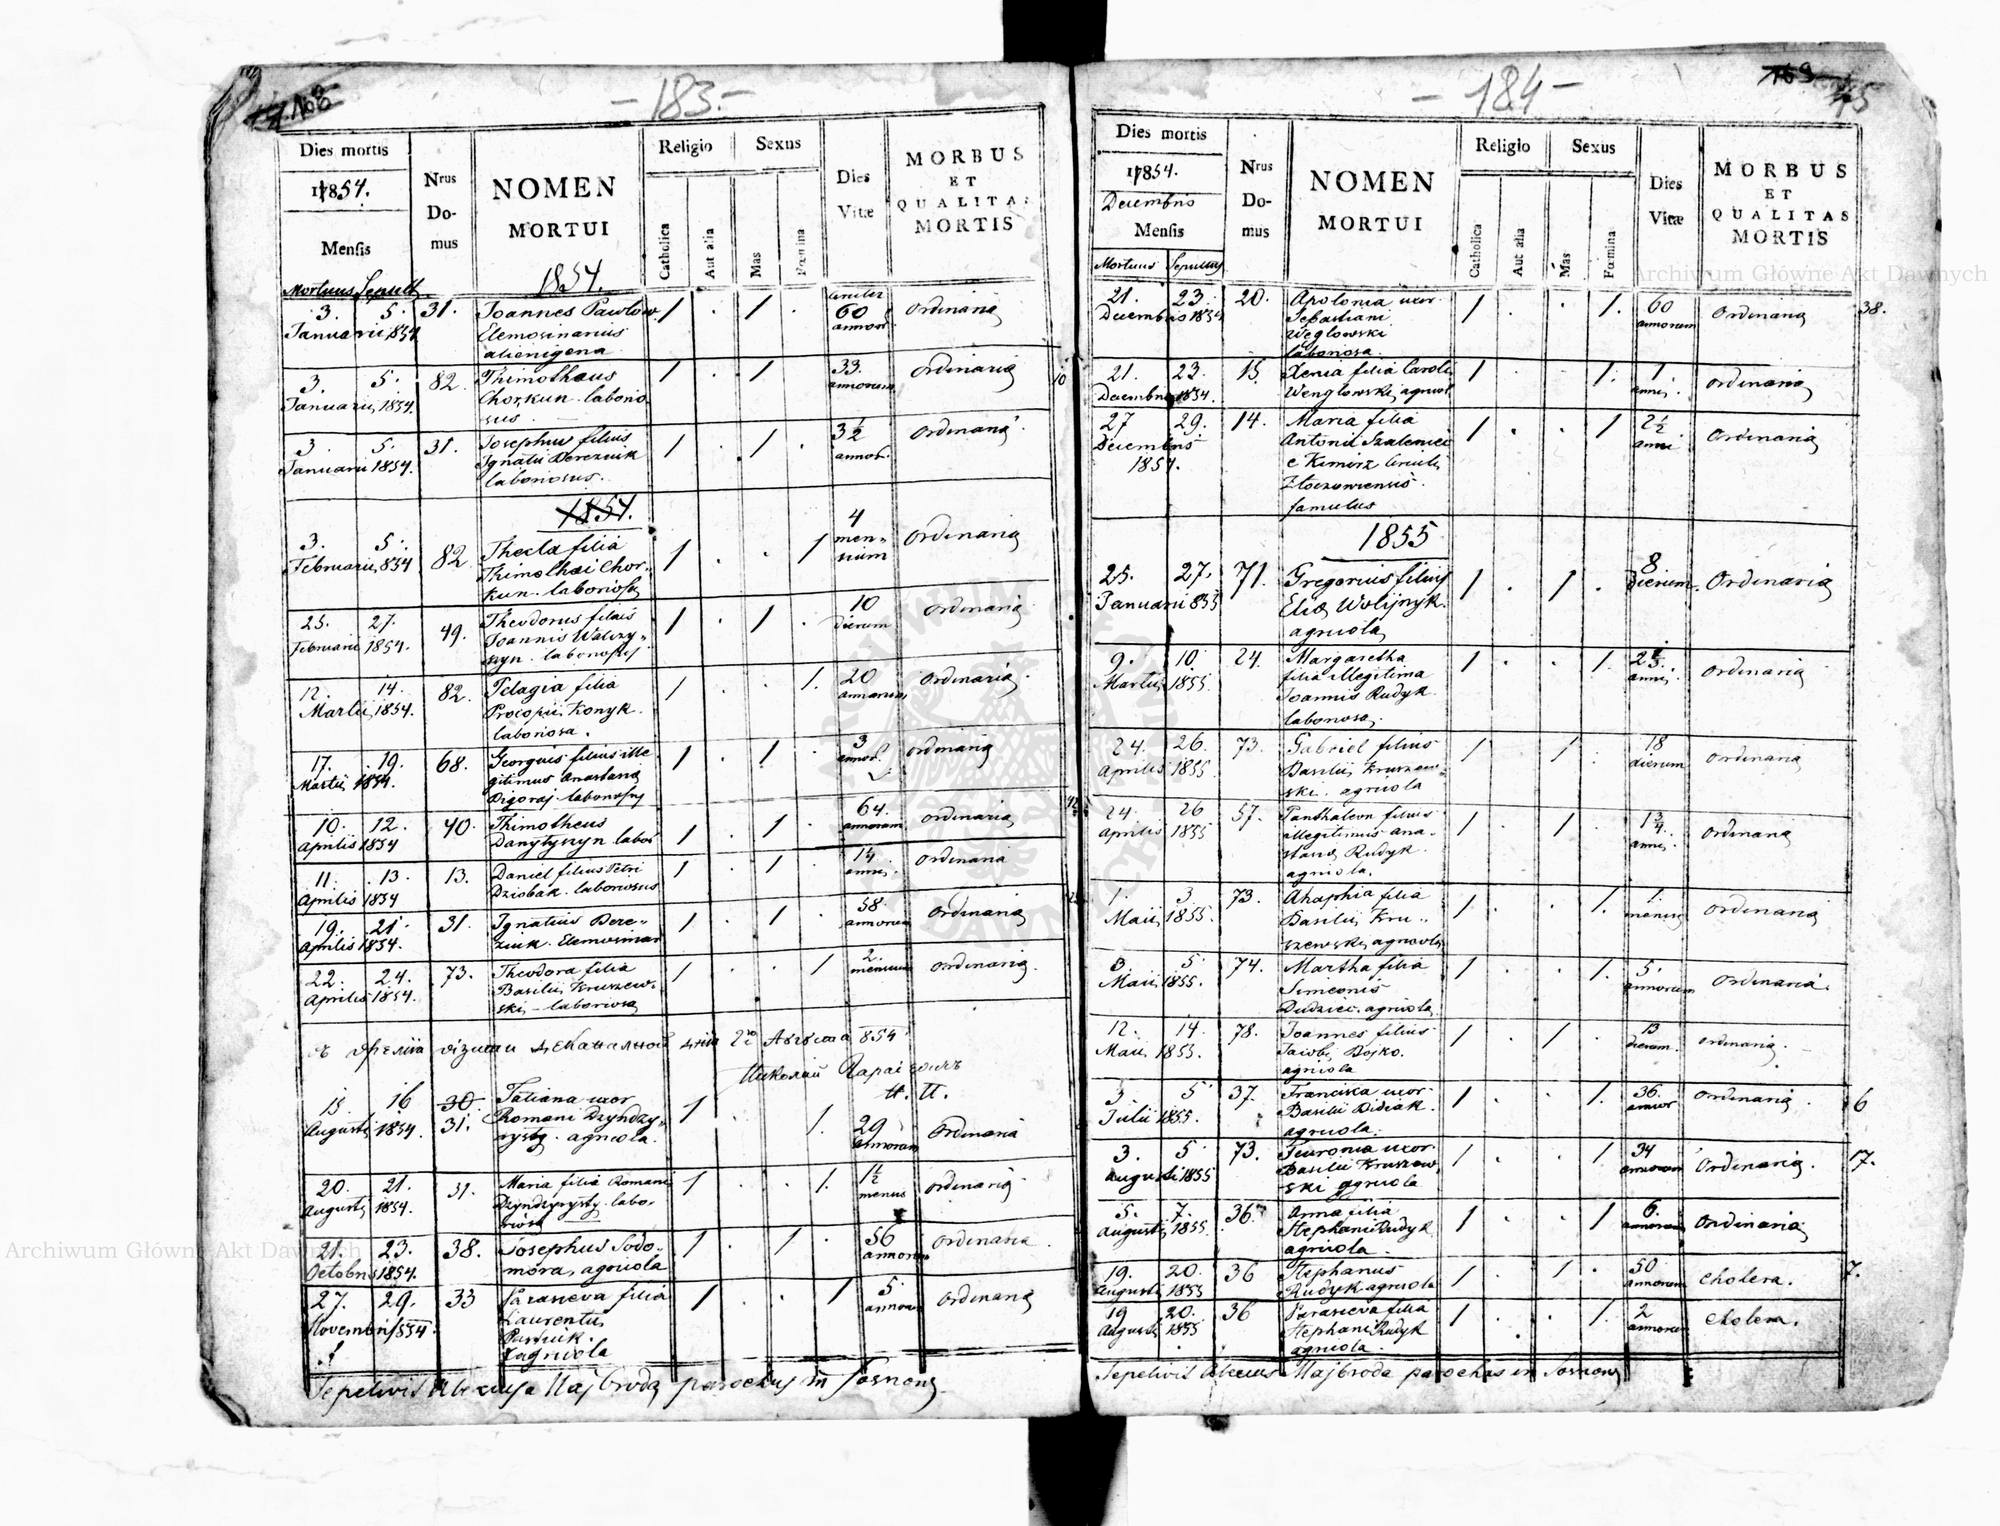 - 183. -
Dies mortis
1854.
Mensis
Mortuus Sepult.
Nrus
Do-
mus
NOMEN
MORTUI
1854.
Religio
Catholica
Aut alia
Sexus
Mas
Fœmina
Dies
Vitæ
MORBUS
ET
QUALITAS
MORTIS
3. 5. 31. Joannes Pawlow 1 . 1 . 60 Ordinaria
Januarii 1854 Elemosinarius annor.
alienigena
3. 5. 82. Thimotheus 1 . 1 33. Ordinaria
Januarii 1854. Chorkun laborio annorum
sus
3 5. 31. Josephus filius 1 . 1 . 3 1/2 Ordinaria
Januarii 1854. Ignatii Bereziuk annor.
laboriosus.
1854.
3. 5. 82. Thecla filia 1 . . 1 4 Ordinaria
Februarii 1854 Thimothei Chor- men-
kun laboriosa sium
25. 27. 49. Theodorus filius 1 . 1 . 10 Ordinaria
Februarii 1854. Joannis Walczy- dierum
szyn
12. 14. 82. Pelagia filia 1 . . 1. 20 Ordinaria
Martii 1854. Procopii Konyk annorum
laboriosa.
17. 19. 68. Georgius filius ille 1 . 1 . 3 Ordinaria
Martii 1854. gitimus Anastasia annor.
Digoraj
10. 12. 40. Thimotheus 1 . 1 . 64. Ordinaria
Aprilis 1854 Danytyszyn labor annorum
11. 13. 13. Daniel filius Petri 1 . 1 Ordinaria
Aprilis 1854 Dziobak laboriosus anni.
19. 21. 31. Ignatius Bere- 1 . 1 . 58. Ordinaria
Aprilis 1854. ziuk Elemosinar annorum
22. 24. 73. Theodora filia 1 . . 1 2. Ordinaria
Aprilis 1854. Basilii Kruszew- mensium
ski laboriosa
854
15 16 30. Tatiana uxor 1 . 1. 29 Ordinaria
Augusti 1854. 31. Romani Dzyndzy- annorum
agricola.
20. 21. 31. Maria filia Romani 1 . . 1. 1 1/2 Ordinaria
Augusti 1854. labo- mensis
riosa
21. 23. 38. Josephus Sodo- 1 . 1 . 56 Ordinaria
Octobris 1854. mora, agricola annorum
27. 29. 33 Parasceva filia 1 . . 1 5 Ordinaria
Novembris 1854. Laurentii annor
agricola
Sepelivit Alexius Najbroda parochus in Sosnow
- 184 -
45
Dies mortis
1854.
Decembris
Mensis
Mortuus Sepultus
Nrus
Do-
mus
NOMEN
MORTUI
Religio
Catholica
Aut alia
Sexus
Mas
Fœmina
Dies
Vitæ
MORBUS
ET
QUALITAS
MORTIS
21. 23. 20. Apolonia uxor 1 . . 1. 60 Ordinaria 38.
Decembris 1854 Sebastiani annorum
Węglowski
laboriosa.
21. 23. 15. Xenia filia Caroli 1 . . 1. 1 Ordinaria
Decembris 1854. Wenglowski, agricol anni.
27 29. 14. Maria filia 1 . . 1 2 1/2 Ordinaria
Decembris Antonii anni
1854. e Kimirz Circuli
Złoczowiensis
famulus
1855
25. 27. 71. Gregorius filius 1 . 1 . 8 Ordinaria
Januarii 855 Eliæ Wolijnyk. dierum.
agricola
9. 10. 24. Margaretha 1 . . 1. Ordinaria
Martii 1855. filia illegitima anni.
Joannis Rudyk
laboriosa.
24. 26. 73. Gabriel filius 1 . 1 . 18 Ordinaria
Aprilis 1855. Basilii Kruszew- dierum
ski. agricola
24. 26 57. Panthaleon filius 1 . 1 . 1 3/4 Ordinaria
Aprilis 1855 illegitimus Ana- anni.
stasiæ Rudyk.
agricola.
1. 3 73. Ahaphia filia 1 . . 1. 1. Ordinaria
Maii 1855. Basilii Kru- mensis
szewski, agricola
3. 5. 74. Martha filia 1 . . 1. 5. Ordinaria.
Maii 1855. Simeonis annorum
agricola
12. 14. 78. Joannes filius 1 . 1 . 13 Ordinaria.
Maii 1855. Jacobi Bojko. dierum.
agricola
3. 5 37. Franciska uxor 1 . . 1. 36. Ordinaria. 6
Julii 1855. Basilii Didiak. annor
agricola.
3. 5 73. Feuronia uxor 1 . . 1. 34 Ordinaria. 17.
Augusti 1855 Basilii Kruszew annorum
ski agricola
5. 7. 36. Anna filia 1 . . 1 6. Ordinaria
Augusti 1855. Stephani Rudyk annorum
agricola.
19. 20. 36 Stephanus 1 . 1 . 50 Cholera. 7.
Augusti 1855 Rudyk agricola annorum
19 20. 36 Parasceva filia 1 . . 1. 2 Cholera.
Augusti 1855 Stephani Rudyk annorum
agricola.
Sepelivit Alexius Najbroda parochus in Sosnow
Archiwum Główne Akt Dawnych
Archiwum Główne Akt Dawnych
ARCHIWUM GŁÓWNE AKT DAWNYCH